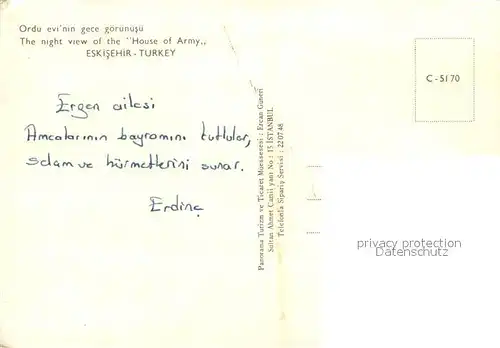 Ordu evi'nin gece görünuşü
The night view of the "House of Army,,
ESKİŞEHİR - TURKEY
C-5170
Ergen ailesi
Amcalarının bayramını kutlular,
selam ve hürmetlerini sunar.
Erdinç
Panorama Turizm ve Ticaret Müessesesi : Ercan Güneri
Sultan Ahmet Camii yanı No : 15 İSTANBUL
Telefonla Sipariş Servisi : 22 07 48
privacy protection
Datenschutz